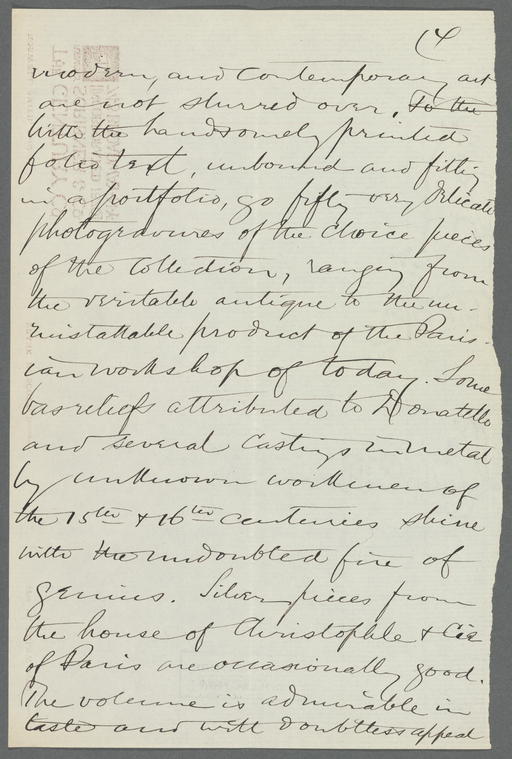 (4
modern, and contemporary art
are not slurred over. To the
With the handsomely printed
folio text, unbound and fitting
in a portfolio, go fifty very delicate
photogravures of the choice pieces
of the collection, ranging from
the veritable antique to the un-
mistakable product of the Paris-
ian workshop of today. Some
basreliefs attributed to Donatello
and several castings in metal
by unknown workmen of
the 15th & 16th centuries shine
with the undoubted fire of
genius. Silver pieces from
the house of Christophle & Cie
of Paris are occasionally good.
The volume is admirable in
taste and will doubtless appeal